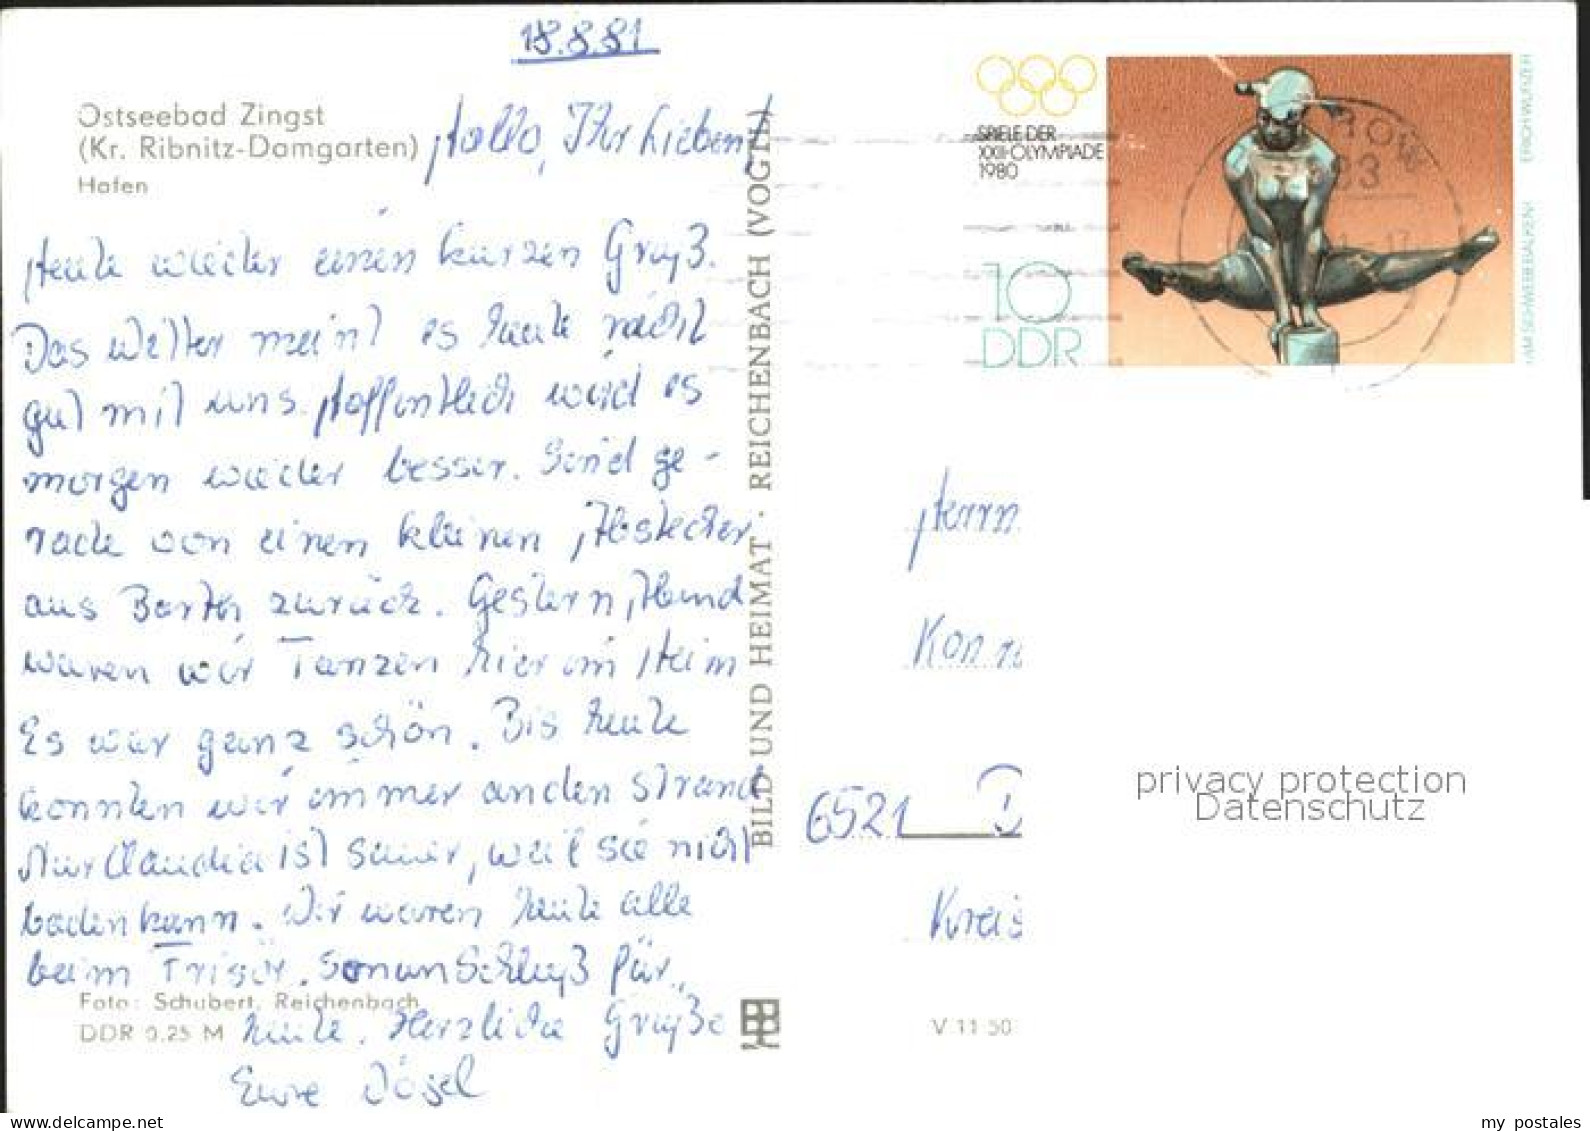 18.8.81
Ostseebad Zingst
(Kr. Ribnitz-Damgarten)
Hafen
Hallo, Ihr Lieben!
Heute wieder einen kurzen Gruß.
Das Wetter meint es heute nicht
gut mit uns. Hoffentlich wird es
morgen wieder besser. Sind ge-
rade von einen kleinen Abstecher
aus Barth zurück. Gestern Abend
waren wir Tanzen hier im Heim
Es war ganz schön. Bis heute
konnten wir immer an den Strand
Nur Claudia ist sauer, weil sie nicht
baden kann. Wir waren heute alle
beim Frisör. So nun Schluß für
heute. Herzliche Grüße
Eure
Foto: Schubert, Reichenbach
DDR 0,25 M
BILD UND HEIMAT · REICHENBACH (VOGTL)
V 11 50
SPIELE DER
XXII·OLYMPIADE
1980
10
DDR
AM SCHWEBEBALKEN
ERICH WURZER
ROW
Herrn
Konr
6521 D
Kreis
privacy protection
Datenschutz
my_postales